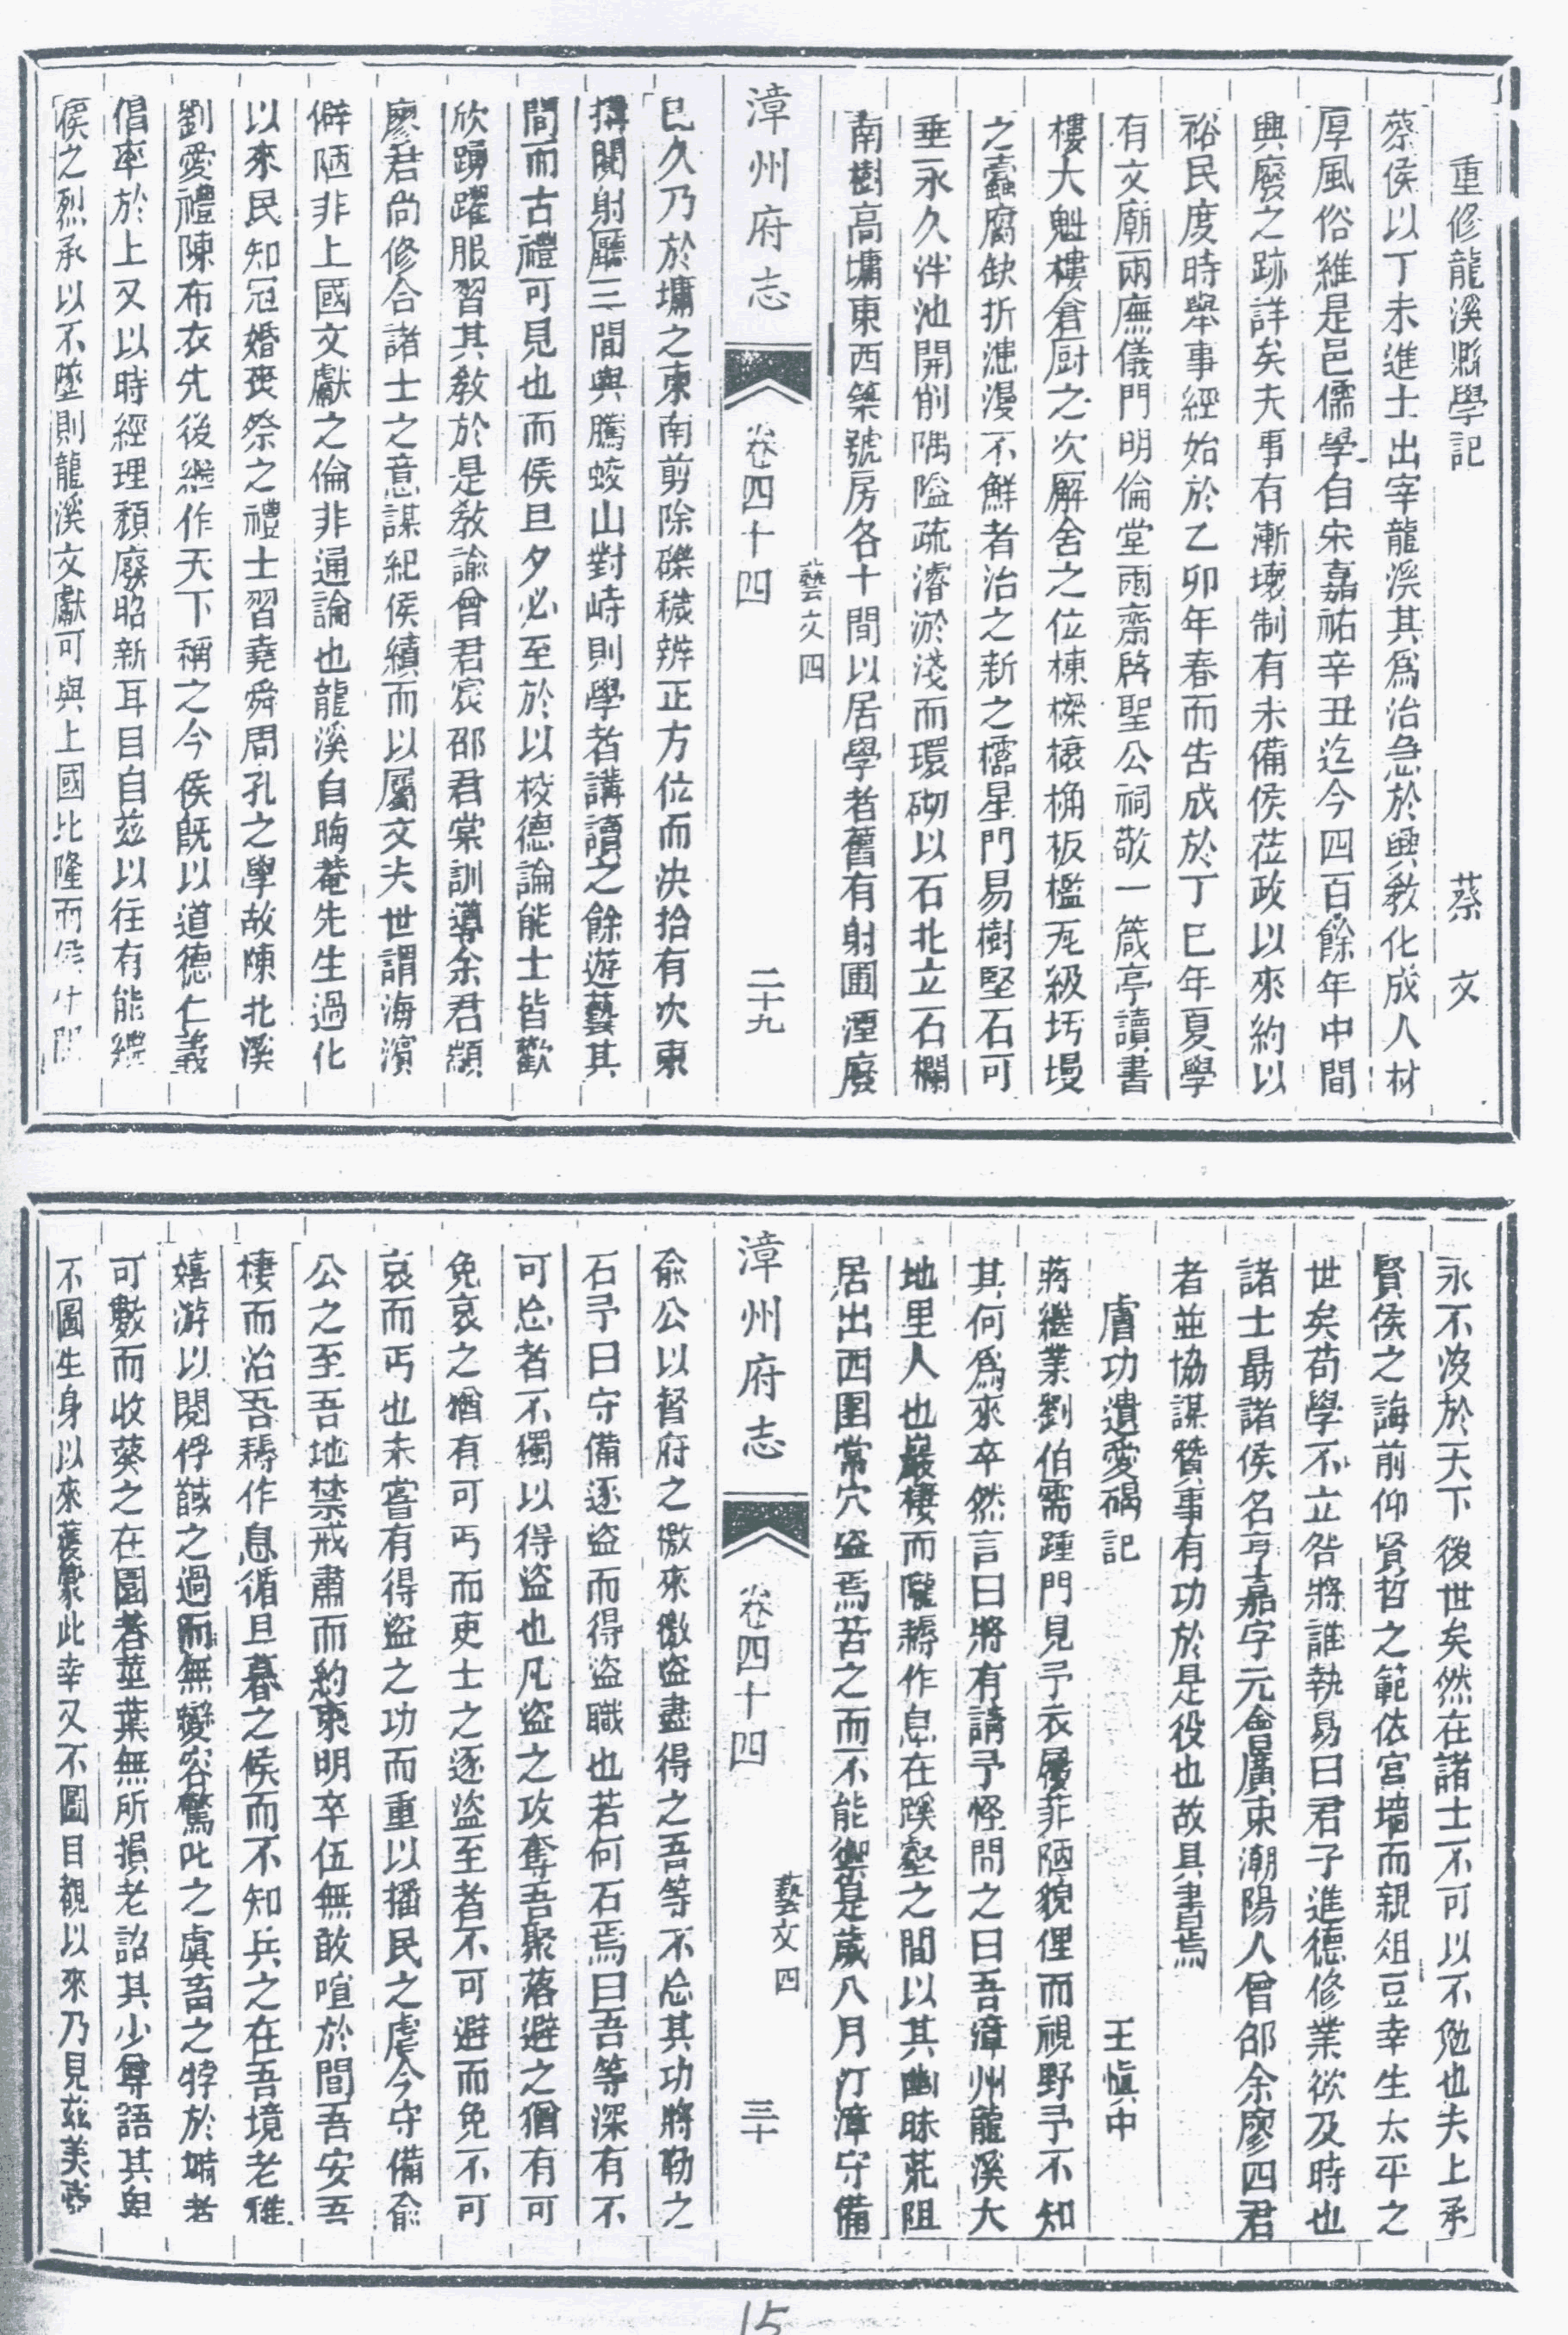 重修龍溪縣學記 蔡 文
蔡侯以丁未進士出宰龍溪其爲治急於興敎化成人材
厚風俗維是邑儒學自宋嘉祐辛丑迄今四百餘年中間
興廢之跡詳矣夫事有漸壞制有未備侯莅政以來約以
裕民度時舉事經始於乙卯年春而告成於丁巳年夏學
有文廟兩廡儀門明倫堂兩齋啓聖公祠敬一箴亭讀書
樓大魁樓倉厨之次廨舍之位棟樑榱桷板檻瓦級圬墁
之蠹腐缺折漶漫不鮮者治之新之櫺星門易樹堅石可
垂永久泮池開削隅隘疏濬淤淺而環砌以石北立石欄
南樹高墉東西築號房各十間以居學者舊有射圃湮廢
漳州府志 卷四十四 藝文四 二十九
已久乃於墉之東南剪除礫穢辨正方位而决拾有次東
搆閱射廳三間與騰蛟山對峙則學者講讀之餘遊藝其
間而古禮可見也而侯旦夕必至於以校德論能士皆歡
欣踴躍服習其敎於是敎諭曾君宸邵君棠訓導余君顓
廖君尚修合諸士之意謀紀侯績而以屬文夫世謂海濱
僻陋非上國文獻之倫非通論也龍溪自晦菴先生過化
以來民知冠婚喪祭之禮士習堯舜周孔之學故陳北溪
劉愛禮陳布衣先後繼作天下稱之今侯旣以道德仁義
倡率於上又以時經理頹廢昭新耳目自兹以往有能繼
侯之烈承以不墜則龍溪文獻可與上國比隆而侯
永不没於天下後世矣然在諸士不可以不勉也夫上承
賢侯之誨前仰賢哲之範依宫墻而親俎豆幸生太平之
世矣苟學不立咎將誰執易曰君子進德修業欲及時也
諸士勗諸侯名亨嘉字元會廣東潮陽人曾邵余廖四君
者並協謀贊事有功於是役也故具書焉
膚功遺愛碣記 王愼中
蔣繼業劉伯需踵門見予衣屨菲陋貌俚而視野予不知
其何爲來卒然言曰將有請予怪問之曰吾漳州龍溪大
地里人也巖棲而隴耨作息在蹊壑之間以其幽昧荒阻
居出西圉常穴盜焉苦之而不能禦是歲八月汀漳守備
漳州府志 卷四十四 藝文四 三十
俞公以督府之檄來儌盜盡得之吾等不忘其功將勒之
石予曰守備逐盜而得盜職也若何石焉曰吾等深有不
可忘者不獨以得盜也凡盜之攻奪吾聚落避之猶有可
免哀之猶有可丐而吏士之逐盜至者不可避而免不可
哀而丐也未嘗有得盜之功而重以播民之虐今守備俞
公之至吾地禁戒肅而約束明卒伍無敢喧於間吾安吾
棲而治吾耨作息循旦暮之候而不知兵之在吾境老稚
嬉游以閱俘馘之過而無變容驚叱之虞畜之牸於塒者
可數而收葵之在園者莖葉無所損老詔其少尊語其卑
不圖生身以來獲蒙此幸又不圖目覩以來乃見兹美
15